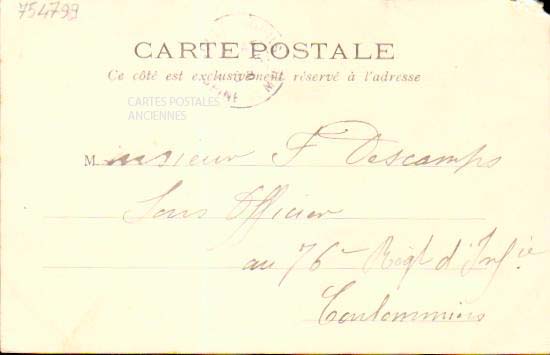 754799
CARTE POSTALE
Ce côté est exclusivement réservé à l'adresse
CARTES POSTALES
ANCIENNES
Monsieur F Descamps
Sous Officier
au 76e Régt d'Infie
Coulommiers